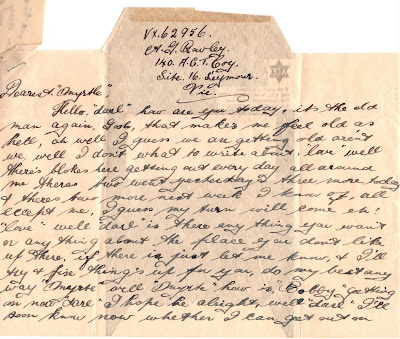 VX.62956.
A.G. Rawley.
140. A.G.T. Coy.
Site. 16. Seymour.
Vic.
Dearest "Myrtle",
Hello, "darl" how are you today, its the old
man again, Gosh, that makes me feel old as
hell, ah well I guess we are getting old aren't
we, well I don't what to write about. "lov" well
there's blokes here getting out every day, all around
me theres two went yesterday & three more today
& theres two more next week I know of, all
except me, I guess my turn will come eh!
"love" well "darl" is there any thing you want
or any thing about the place you don't like
up there. If there is just let me know, & I'll
try & fix thing's up for you, do my best any
way "Myrtle" well "Myrtle" how is, "Bobby" getting
on now "darl" I hope he alright, well "darl" I'll
soon know now whether I can get out on